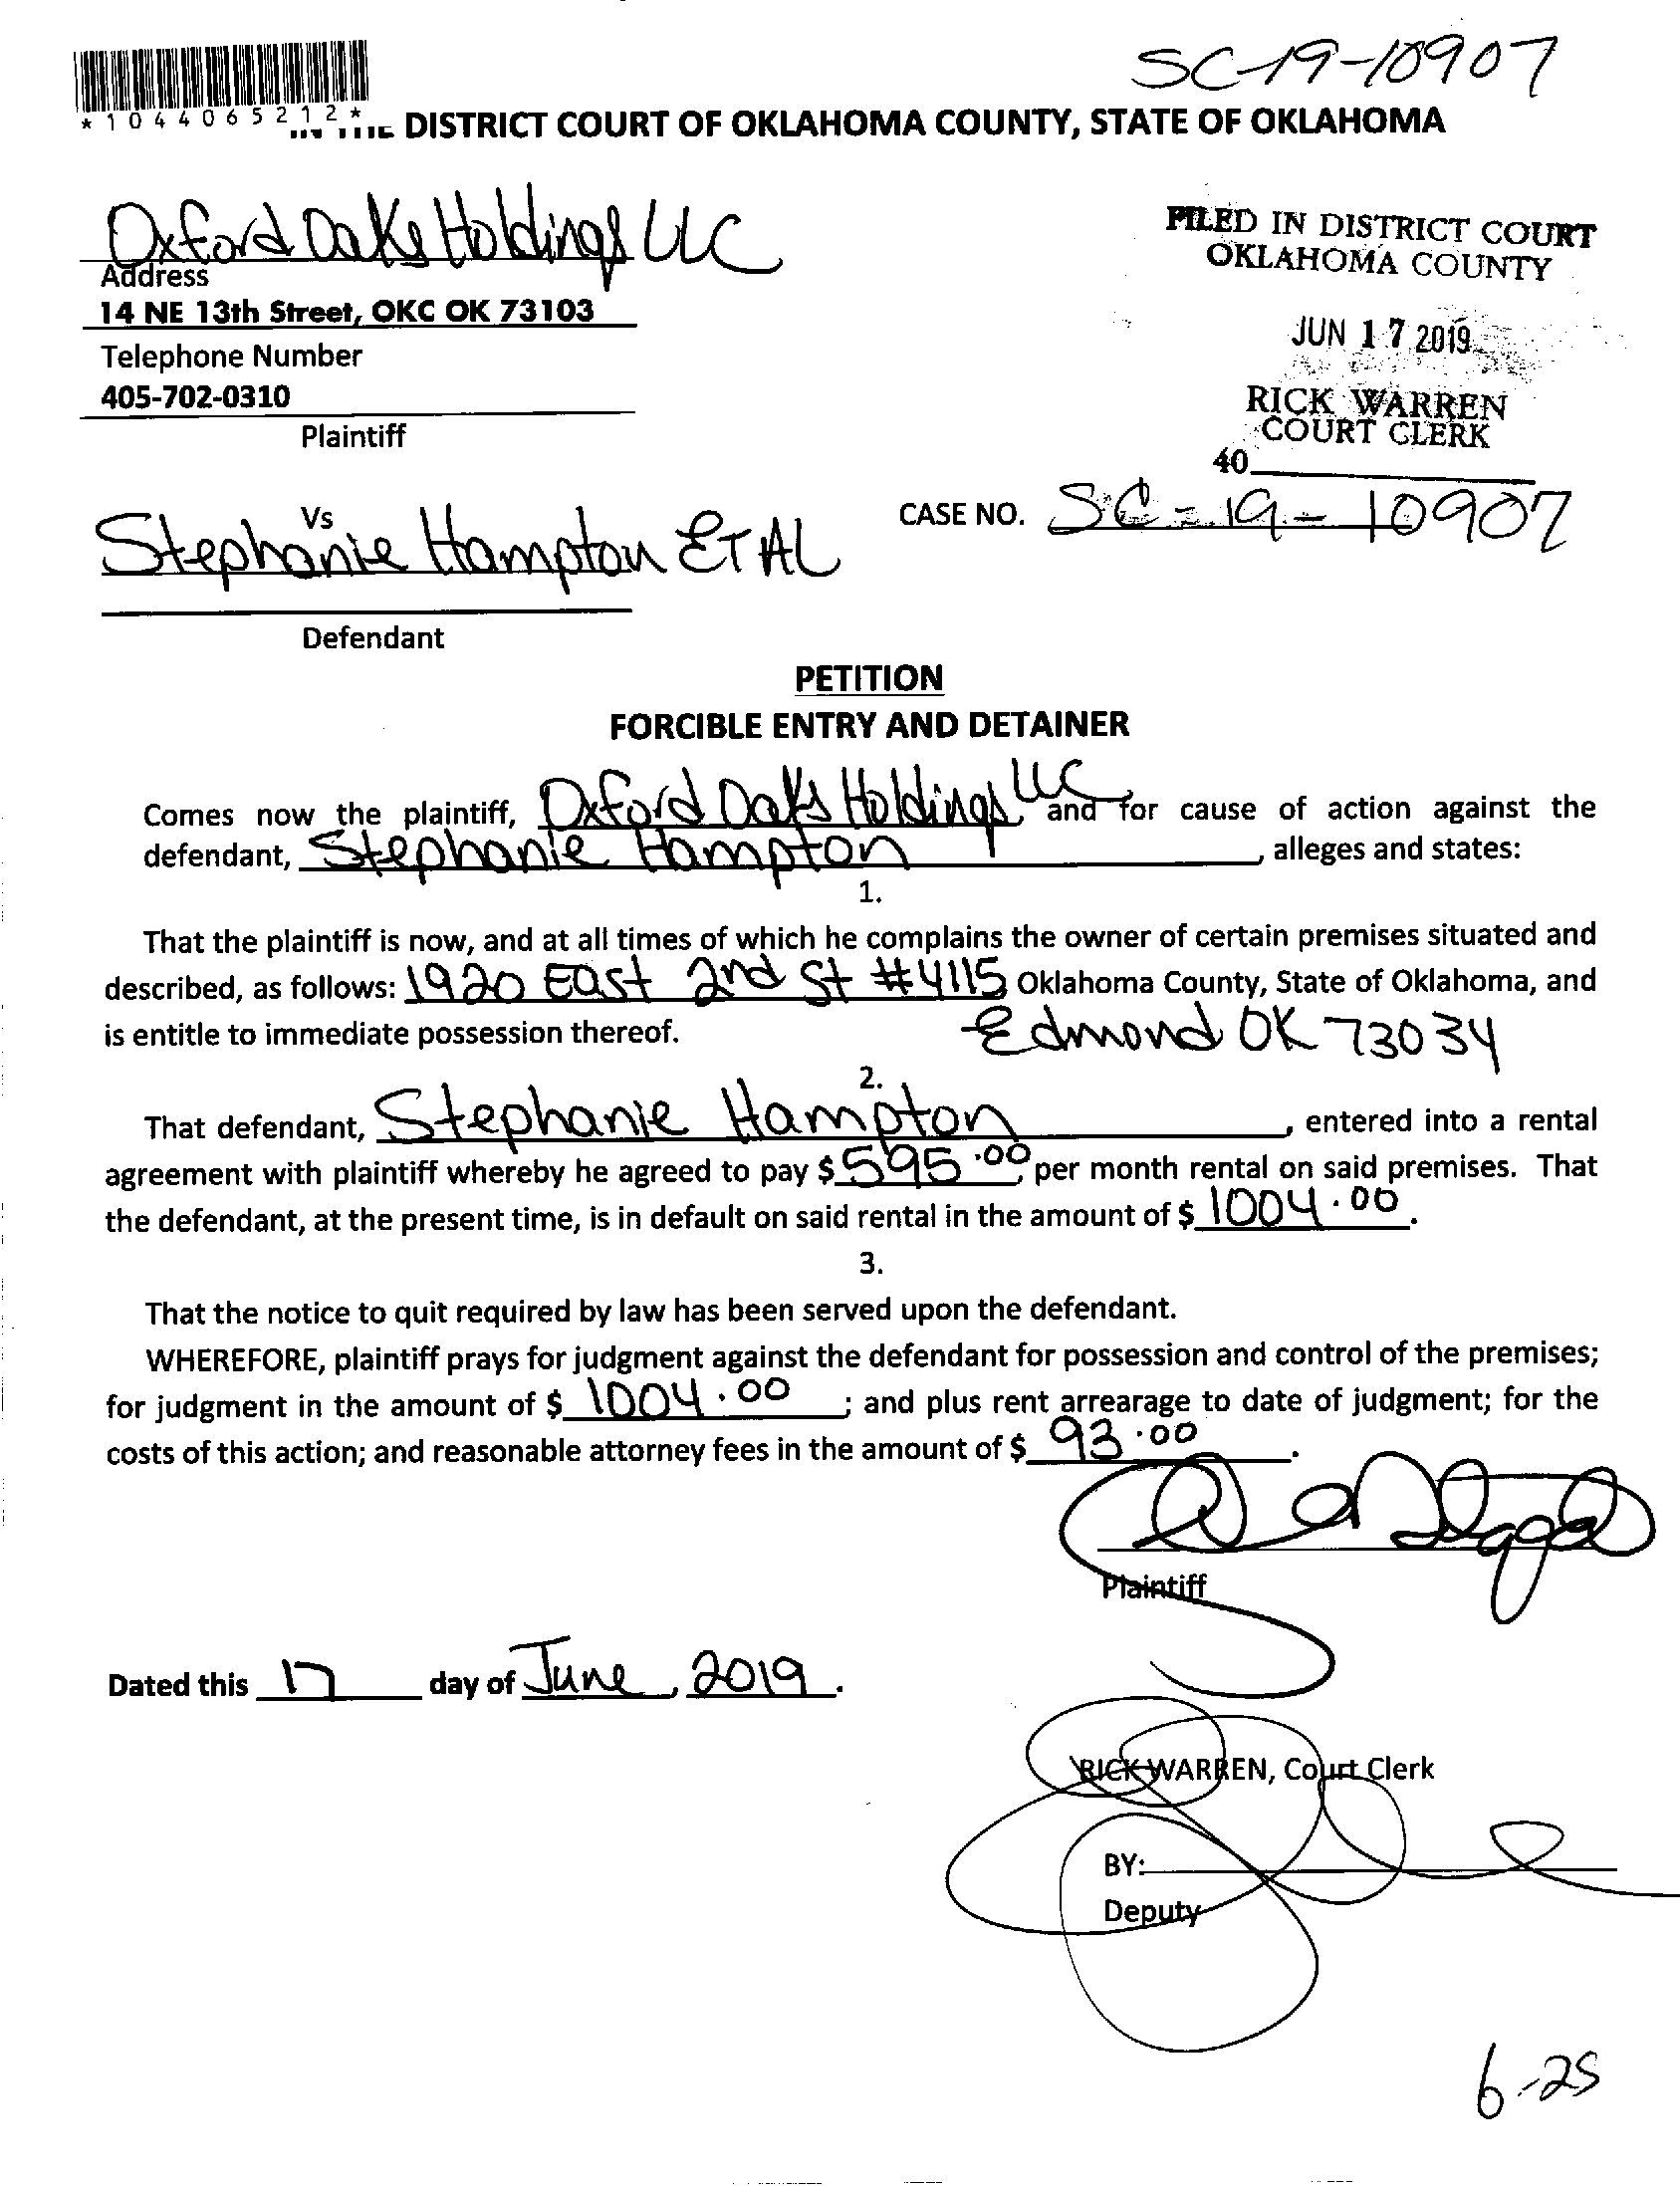 SC-19-10907
*1044065212*
DISTRICT COURT OF OKLAHOMA COUNTY, STATE OF OKLAHOMA
Oxford Oaks Holdings LLC
Address
14 NE 13th Street, OKC OK 73103
Telephone Number
405-702-0310
Plaintiff
FILED IN DISTRICT COURT
OKLAHOMA COUNTY
JUN 17 2019
RICK WARREN
COURT CLERK
40
Vs
Stephanie Hampton ET AL
Defendant
CASE NO. SC-19-10907
PETITION
FORCIBLE ENTRY AND DETAINER
Comes now the plaintiff, Oxford Oaks Holdings LLC and for cause of action against the
defendant, Stephanie Hampton, alleges and states:
1.
That the plaintiff is now, and at all times of which he complains the owner of certain premises situated and
described, as follows: 1920 East 2nd St #4115 Oklahoma County, State of Oklahoma, and
is entitle to immediate possession thereof. Edmond OK 73034
2.
That defendant, Stephanie Hampton, entered into a rental
agreement with plaintiff whereby he agreed to pay $595.00 per month rental on said premises. That
the defendant, at the present time, is in default on said rental in the amount of $1004.00.
3.
That the notice to quit required by law has been served upon the defendant.
WHEREFORE, plaintiff prays for judgment against the defendant for possession and control of the premises;
for judgment in the amount of $1004.00; and plus rent arrearage to date of judgment; for the
costs of this action; and reasonable attorney fees in the amount of $93.00.
Plaintiff
Dated this 17 day of June, 2019.
RICK WARREN, Court Clerk
BY:
Deputy
6-25